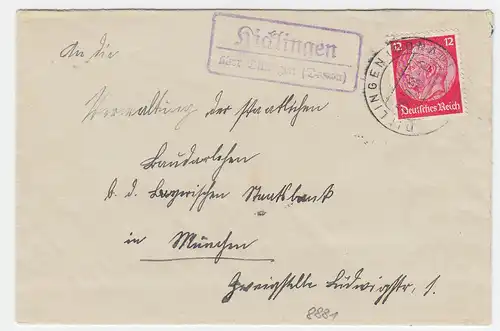 Hicklingen
über Dillingen (Donau)
12 12
Deutsches Reich
DILLINGEN
An die
Verwaltung der staatlichen
Baudarlehen
b. d. Bayerischen Staatsbank
in München
Zweigstelle Ludwigstr. 1.
8881